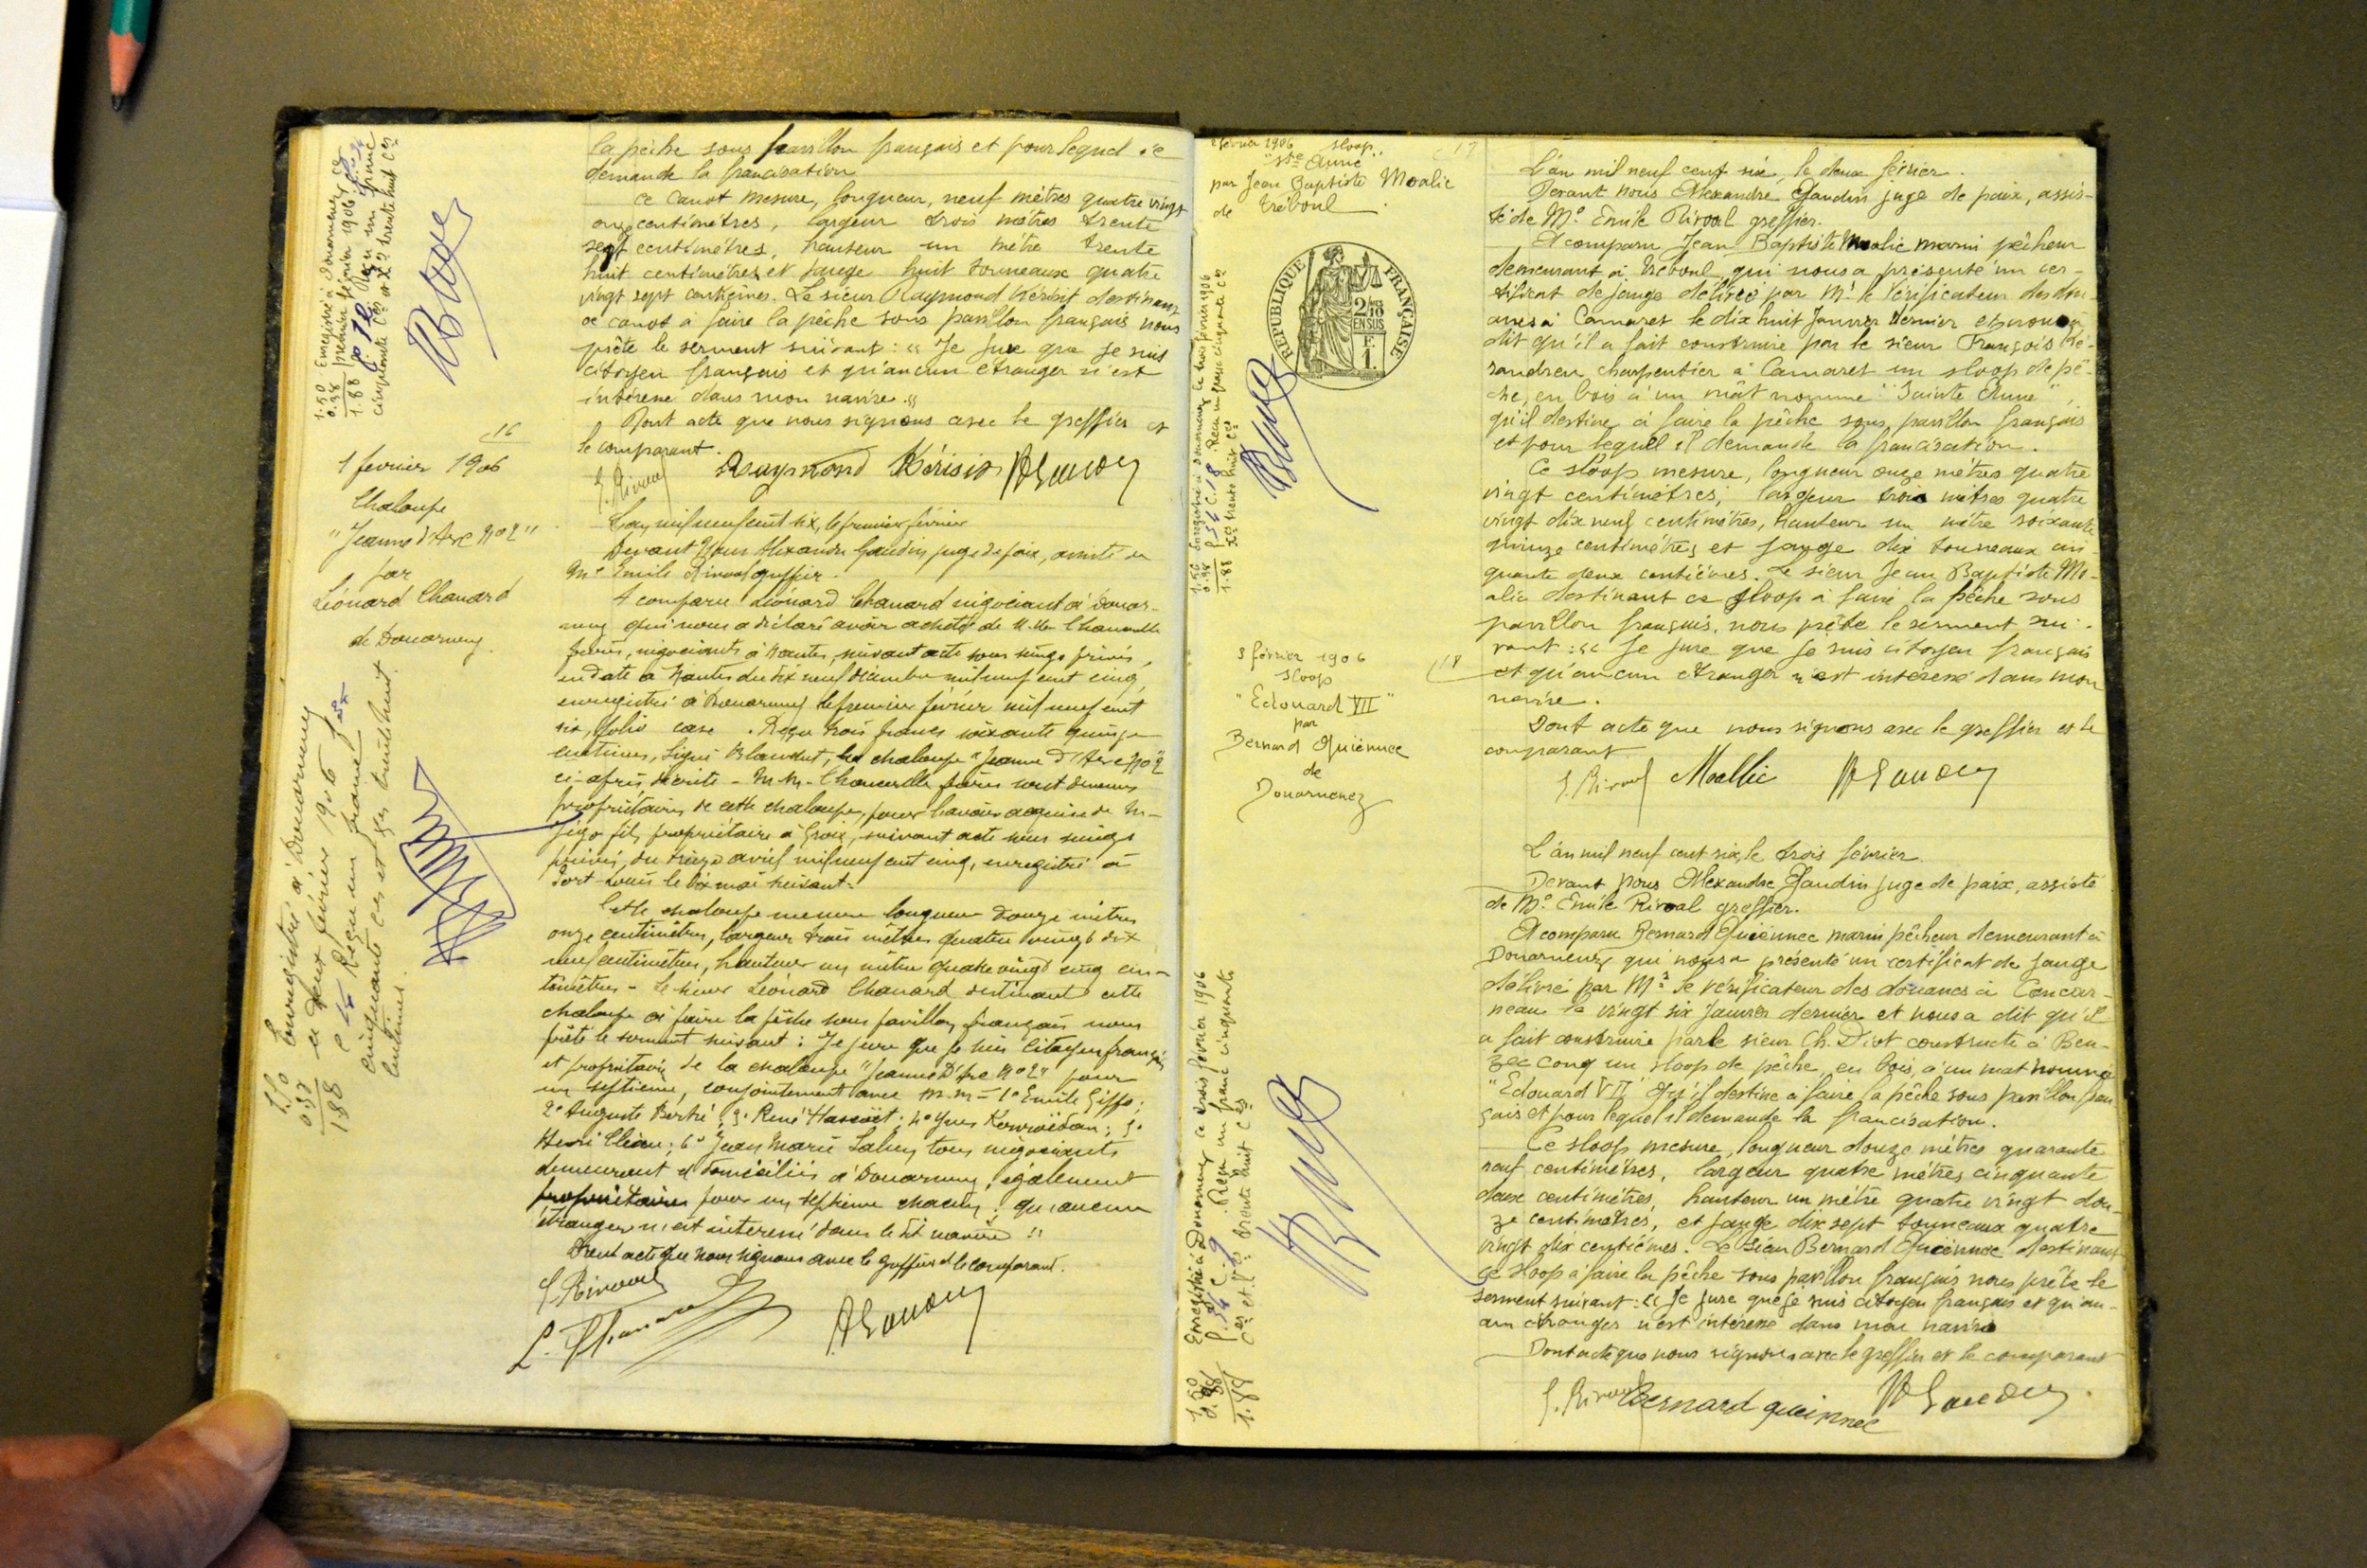 la pêche sous pavillon français et pour lequel il
demande la francisation
Ce canot mesure, longueur, neuf mètres quatre vingt
onze centimètres, largeur trois mètres trente
sept centimètres, hauteur un mètre trente
huit centimètres et jauge huit tonneaux quatre
vingt sept centièmes. Le sieur Raymond Kérisit destinant
ce canot à faire la pêche sous pavillon français nous
prête le serment suivant : "Je jure que je suis
citoyen français et qu'aucun étranger n'est
intéressé dans mon navire."
Dont acte que nous signons avec le greffier et
le comparant.
E. Rivoal Raymond Kérisit AGaudin
Enregistré à Douarnenez le
premier février 1906
Reçu un franc
cinquante ces et Xes trente huit ces
1.50
0.38
1.88
16
1 février 1906
Chaloupe
"Jeanne d'Arc No 2"
par
Léonard Chanard
de Douarnenez.
L'an mil neuf cent six, le premier février
Devant Nous Alexandre Gaudin juge de paix, assisté de
Me Emile Rivoal greffier.
A comparu Léonard Chanard négociant à Douar-
nenez qui nous a déclaré avoir acheté de M.M. Chancerelle
frères, négociants à Nantes, suivant acte sous seings privés,
en date à Nantes du dix neuf décembre mil neuf cent cinq,
enregistré à Douarnenez le premier février mil neuf cent
six, folio case . Reçu trois francs soixante quinze
centimes, signé Blandut, la chaloupe "Jeanne d'Arc No 2"
ci-après décrite - M.M. Chancerelle frères sont devenus
propriétaires de cette chaloupe, pour l'avoir acquise de M-
fils, propriétaire à Groix, suivant acte sous seings
privés, du treize avril mil neuf cent cinq, enregistré à
Port-Louis le dix mai suivant.
Cette chaloupe mesure longueur douze mètres
onze centimètres, largeur trois mètres quatre vingt dix
neuf centimètres, hauteur un mètre quatre vingt cinq cen-
timètres - Le sieur Léonard Chanard destinant cette
chaloupe à faire la pêche sous pavillon français nous
prête le serment suivant : "Je jure que je suis citoyen français
et propriétaire de la chaloupe "Jeanne D'Arc No 2" pour
un septième, conjointement avec M.M - 1o Emile Giffo;
2o Auguste Bertré; 3o René Hascoët; 4o Yves Kervoëdan; 5o
Henri ; 6o Jean Marie Salun, tous négociants
demeurant et domiciliés à Douarnenez, également
propriétaires pour un septième chacun; qu'aucun
étranger n'est intéressé dans le dit navire"
Dont acte que nous signons avec le greffier et le comparant.
E. Rivoal
L. Chanard AGaudin
Enregistré à Douarnenez
le deux février 1906
Reçu un franc
cinquante ces et Xes trente huit
centimes.
1.50
0.38
1.88
2 février 1906 sloop
"Ste Anne"
par Jean Baptiste Moalic
de Tréboul
17
RÉPUBLIQUE FRANÇAISE
2/10
EN SUS
F.
1.
Enregistré à Douarnenez le trois février 1906
f. 54 C. 18. Reçu un franc cinquante ces
Xes trente huit ces
1.50
0.38
1.88
L'an mil neuf cent six, le deux février.
Devant nous Alexandre Gaudin juge de paix, assis-
té de Me Emile Rivoal greffier.
A comparu Jean Baptiste Moalic marin pêcheur
demeurant à Tréboul, qui nous a présenté un cer-
tificat de jauge délivré par Mr le Vérificateur des dou-
anes à Camaret le dix huit Janvier dernier et nous a
dit qu'il a fait construire par le sieur François Ké-
raudren charpentier à Camaret un sloop de pê-
che, en bois à un mât nommé "Sainte Anne",
qu'il destine à faire la pêche sous pavillon français
et pour lequel il demande la francisation.
Ce sloop mesure, longueur onze mètres quatre
vingt centimètres, largeur trois mètres quatre
vingt dix neuf centimètres, hauteur un mètre soixante
quinze centimètres et jauge dix tonneaux cin-
quante deux centièmes. Le sieur Jean Baptiste Mo-
alic destinant ce sloop à faire la pêche sous
pavillon français, nous prête le serment sui-
vant : "Je jure que je suis citoyen français
et qu'aucun étranger n'est intéressé dans mon
navire.
Dont acte que nous signons avec le greffier et le
comparant
E. Rivoal Moallic AGaudin
3 février 1906
sloop
"Edouard VII"
par
Bernard Quiénnec
de
Douarnenez
18
L'an mil neuf cent six, le trois février.
Devant nous Alexandre Gaudin juge de paix, assisté
de Me Emile Rivoal greffier.
A comparu Bernard Quiénnec marin pêcheur demeurant à
Douarnenez qui nous a présenté un certificat de jauge
délivré par Mr le vérificateur des douanes à Concar-
neau le vingt six janvier dernier et nous a dit qu'il
a fait construire par le sieur Ch. Diot constructr à Beu-
zec conq un sloop de pêche, en bois, à un mat nommé
"Edouard VII" qu'il destine à faire la pêche sous pavillon fran-
çais et pour lequel il demande la francisation.
Ce sloop mesure, longueur douze mètres quarante
neuf centimètres, largeur quatre mètres cinquante
deux centimètres, hauteur un mètre quatre vingt dou-
ze centimètres, et jauge dix sept tonneaux quatre
vingt dix centièmes. Le sieur Bernard Quiénnec destinant
ce sloop à faire la pêche sous pavillon français nous prête le
serment suivant : "Je jure que je suis citoyen français et qu'au-
cun étranger n'est intéressé dans mon navire
Dont acte que nous signons avec le greffier et le comparant
E. Rivoal Bernard quéinnec AGaudin
Enregistré à Douarnenez le trois février 1906
f. 54 C. 19. Reçu un franc cinquante
ces et Xes trente huit ces
1.50
0.38
1.88